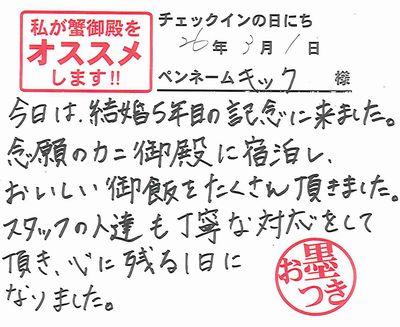 私が蟹御殿を
オススメ
します!!
チェックインの日にち
26年3月1日
ペンネーム キック 様
今日は、結婚5年目の記念に来ました。
念願のカニ御殿に宿泊し、
おいしい御飯をたくさん頂きました。
スタッフの人達も丁寧な対応をして
頂き、心に残る1日に
なりました。
お墨つき